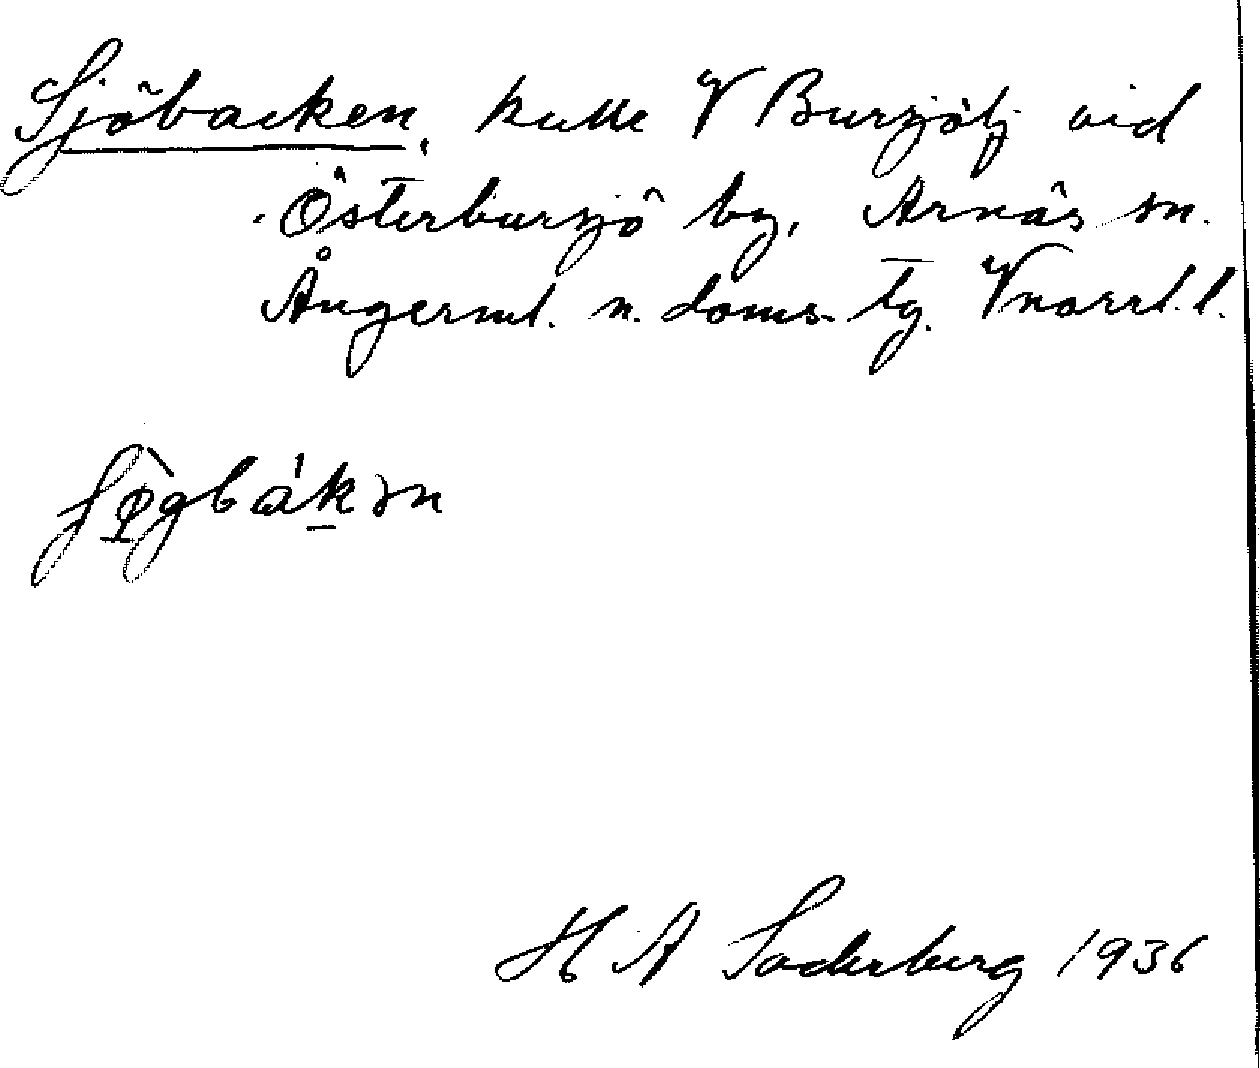 Sjöbacken, kulle V Bursjötj vid
Österbursjö by, Arnäs sn.
Ångerml. n. doms. tg. Vnorrl. l.
H A Söderberg 1936